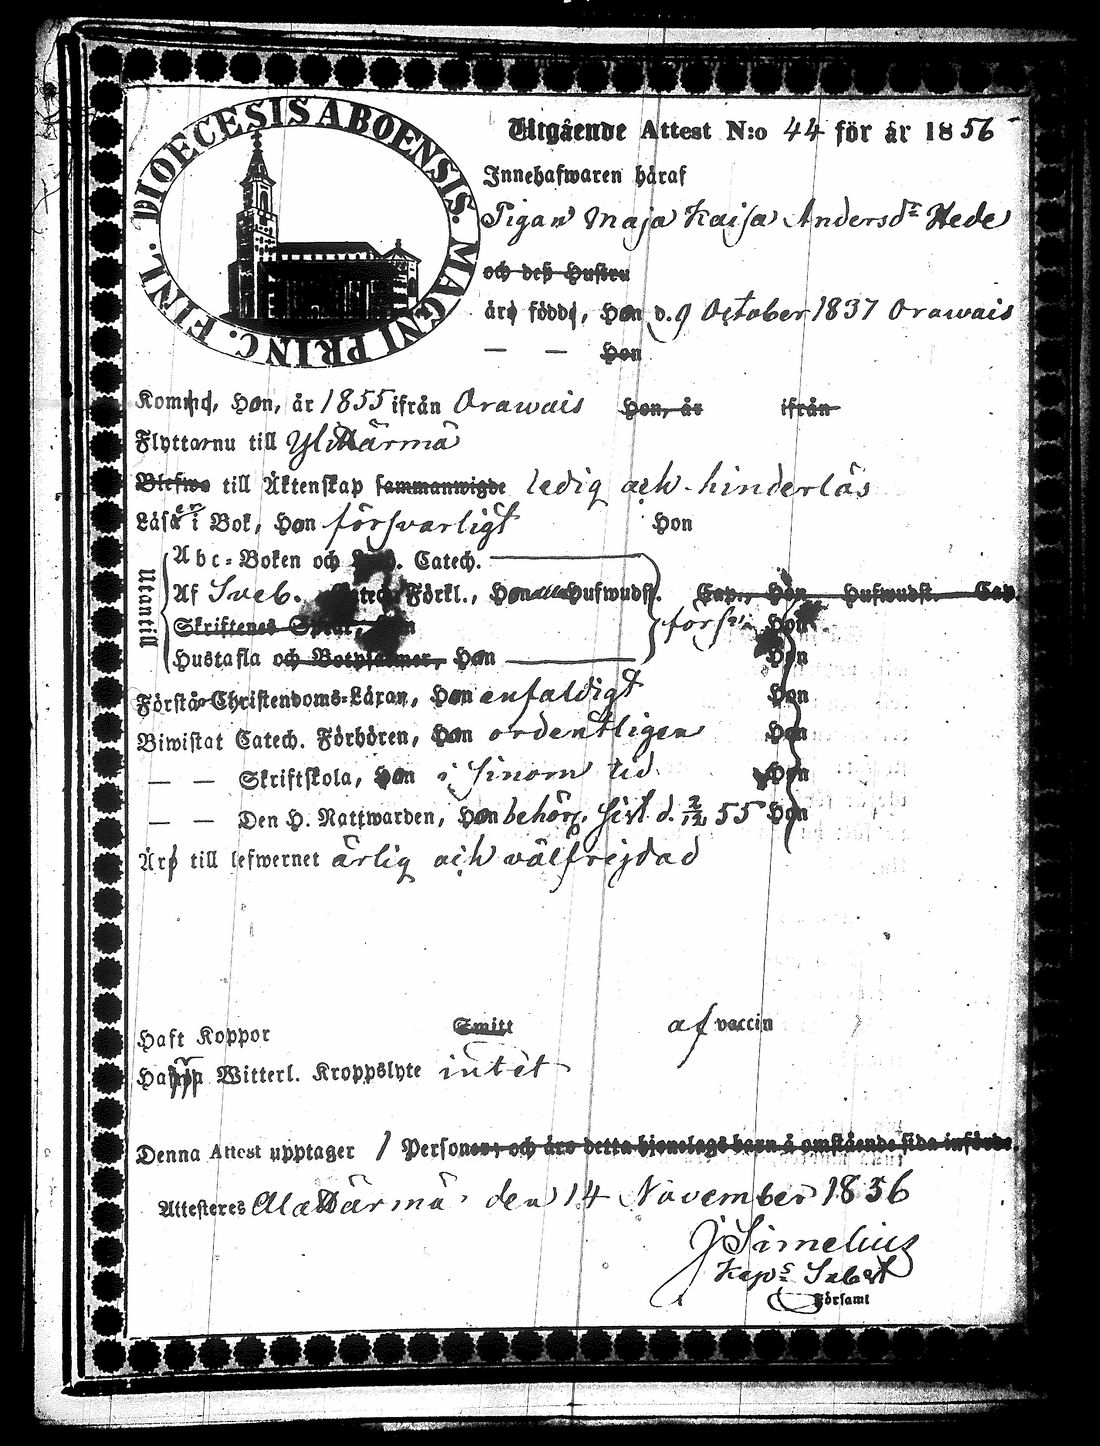 DIOECESIS ABOENSIS. MAGNI PRINC. FINL.
Utgående Attest N:o 44 för år 1856
Innehafwaren häraf
Pigan Maja Kaisa Andersdr Hede
och deß Hustru
äro födde, Hon d. 9 October 1837 Orawais
— — Hon
Kommo, Hon, år 1855 ifrån Orawais Hon, år ifrån
Flyttar nu till YliHärmä
Blefwo till Äktenskap sammanwigde ledig och hinderlös
Läsa i Bok, Hon försvarligt Hon
Utantill
Abc-Boken och Catech.
Af Sveb. Catech. Förkl., Hon Hufwudst. Cap., Hon Hufwudst. Cap.
Skriftenes Hon försv. Hon
Hustafla och Botpsalmer, Hon Hon
Förstå Christendoms-Läran, Hon enfaldigt Hon
Biwistat Catech. Förhören, Hon ordentligen Hon
— — Skriftskola, Hon i sinom tid Hon
— — Den H. Nattwarden, Hon behör. sist d. 2/12 55 Hon
Äro till lefwernet ärlig och välfrejdad
Haft Koppor Smitt af vaccin
Hafwa Witterl. Kroppslyte intet
Denna Attest upptager 1 Personer och äro detta hjonelags barn å omstående sida införde.
Attesteras AlaHärmä den 14 November 1856
J Simelius
Kaps Subst
Församl